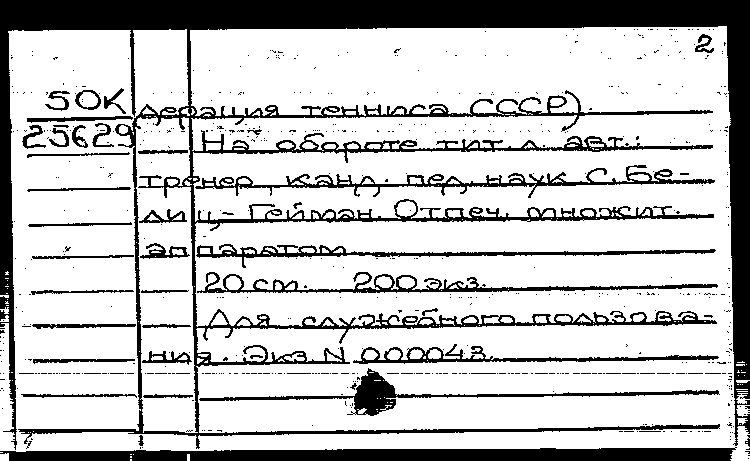 2
50К
25629
дерация тенниса СССР).
На обороте тит. л. авт.:
тренер, канд. пед. наук С. Бе-
лиц-Гейман. Отпеч. множит.
аппаратом
20 см. 200 экз.
Для служебного пользова-
ния. Экз. N 000043.